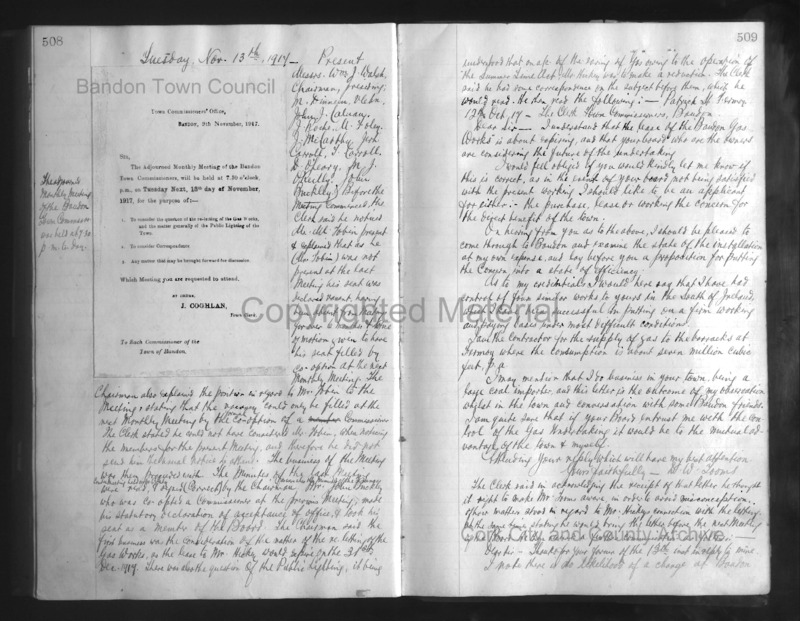 508
Tuesday, Nov. 13th, 1917 –
Bandon Town Council
Town Commissioners' Office,
Bandon, 9th November, 1917.
Sir,
The Adjourned Monthly Meeting of the Bandon
Town Commissioners, will be held at 7.30 o'clock,
p.m., on Tuesday Next, 13th day of November,
1917, for the purpose of:—
1. To consider the question of the re-letting of the Gas Works,
and the matter generally of the Public Lighting of the
Town.
2. To consider Correspondence
3. Any matter that may be brought forward for discussion.
Which Meeting you are requested to attend.
BY ORDER,
J. COGHLAN,
Town Clerk.
To Each Commissioner of the
Town of Bandon.
Monthly Meeting
of the Bandon
Town Commissioners
was held at 7.30
p.m. to day.
Present
Messrs. Wm. J. Walsh,
Chairman, presiding,
John J. Calnan,
McCarthy, John
J. Carroll
Buckley. Before the
Meeting Commenced, the
Clerk said he noticed
Mr. Tobin present
& explained that as he
(Mr Tobin) was not
present at the last
Meeting his seat was
declared vacant, having
for over 6 months & notice
of motion given to have
his seat filled by
co-option at the next
Monthly Meeting. The
Chairman also explained the position in regard to Mr. Tobin to the
Meeting, stating that the vacancy could only be filled at the
next Monthly Meeting by the co-option of a Commissioner
The Clerk stated he could not have considered Mr. Tobin, when noticing
the members for the present Meeting, and therefore he did not
send him the usual notice to attend. The business of the Meeting
was then proceeded with. The Minutes of the last Meeting
were read, & signed by the Chairman. Mr. John
who was co-opted a Commissioner at the previous Meeting, made
his statutory declaration of acceptance of office, & took his
seat as a member of the Board. The Chairman said the
first business was the consideration of the matter of the re-letting of the
Gas Works, as the lease to Mr. Hickey would expire on the 31st
Dec. 1917. There was also the question of the Public Lighting, it being
509
understood that in case of the saving of Gas owing to the operation of
the Summer Time Act, Mr Hickey was to make a reduction. The Clerk
said he had some correspondence on the subject before them, which he
would read. He then read the following: – Patrick St Fermoy
12th Oct. 17 – The Clerk Town Commissioners, Bandon.
Dear Sir – I understand that the lease of the Bandon Gas
Works is about expiring, and that your board who are the owners
are considering the future of the undertaking.
I would feel obliged if you would kindly let me know if
this is correct, as in the event of your board not being satisfied
with the present working I should like to be an applicant
for either: – the purchase, lease or working the concern for
the direct benefit of the town.
On hearing from you as to the above, I should be pleased to
come through to Bandon and examine the state of the installation
at my own expense, and lay before you a proposition for putting
the Concern into a state of efficiency.
As to my credentials I would here say that I have had
control of four similar works to yours in the South of Ireland,
and have been successful in putting on a firm working
and paying basis under most difficult conditions.
I am the contractor for the supply of gas to the barracks at
Fermoy where the consumption is about seven million cubic
feet p.a.
I may mention that I do business in your town, being a
large coal importer, and this letter is the outcome of my observation
whilst in the town and conversation with some Bandon friends.
I am quite sure that if your Board entrust me with the con-
trol of the Gas Undertaking it would be to the mutual ad-
vantage of the town & myself.
Awaiting your reply which will have my best attention
Yours faithfully –
The Clerk said in acknowledging the receipt of that letter he thought
it right to make Mr. Toms aware in order to avoid misconception,
of how matters stood in regard to Mr. Hickey's connection with the letting,
at the same time stating he would bring the letter before the next Meeting
Dear Sir – Thanks for your favour of the 13th inst in reply to mine.
I note there is no likelihood of a change at Bandon
Copyrighted Material
Cork City and County Archive